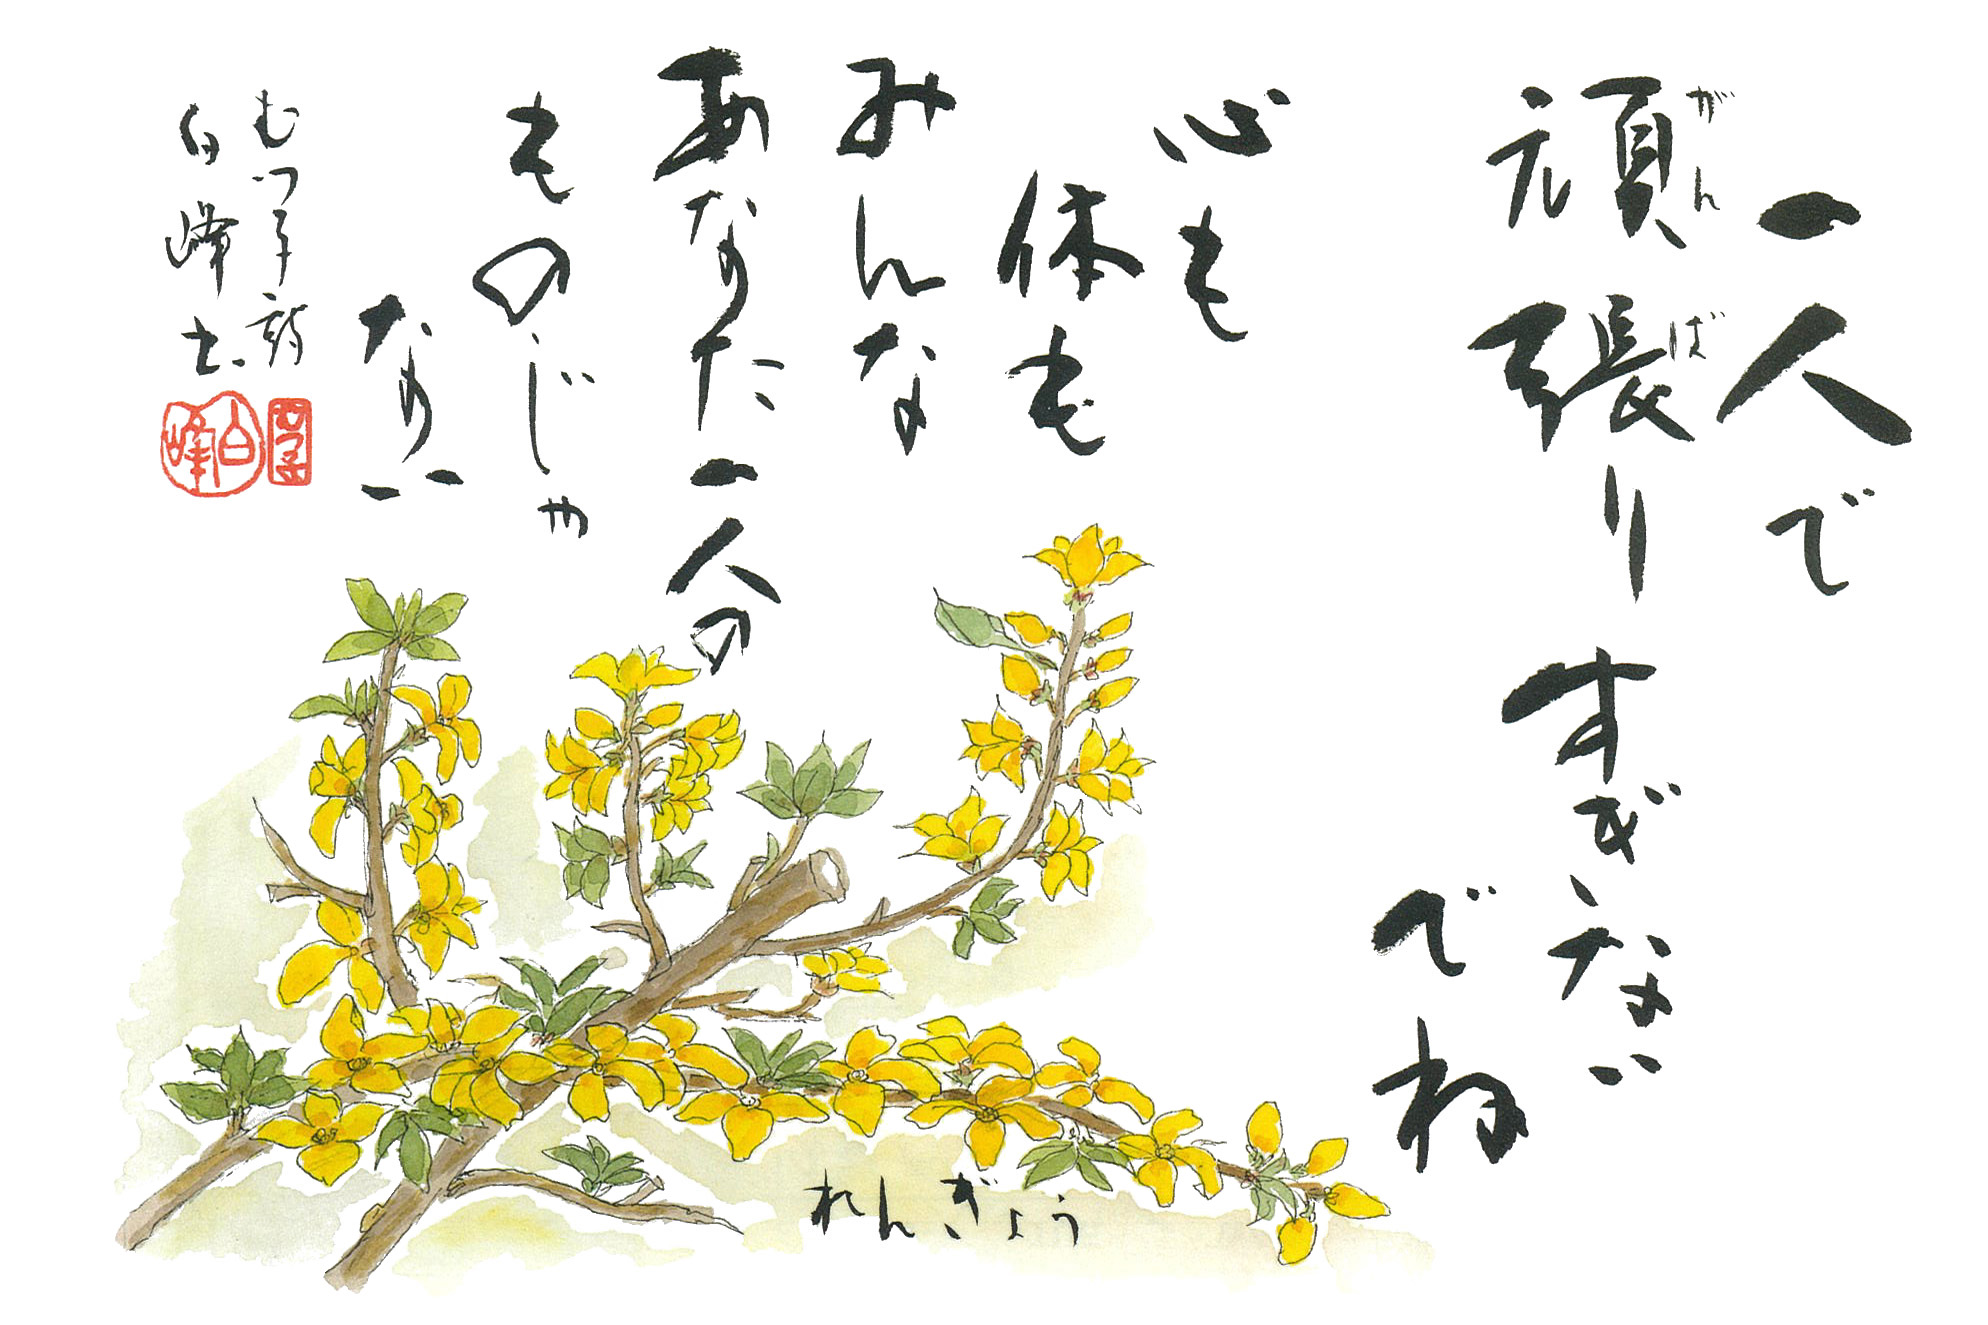 一人で
頑張りすぎない
でね
心も
体も
みんな
あなた一人の
ものじゃ
ない
むつ子詩
白峰書
白峰
れんぎょう